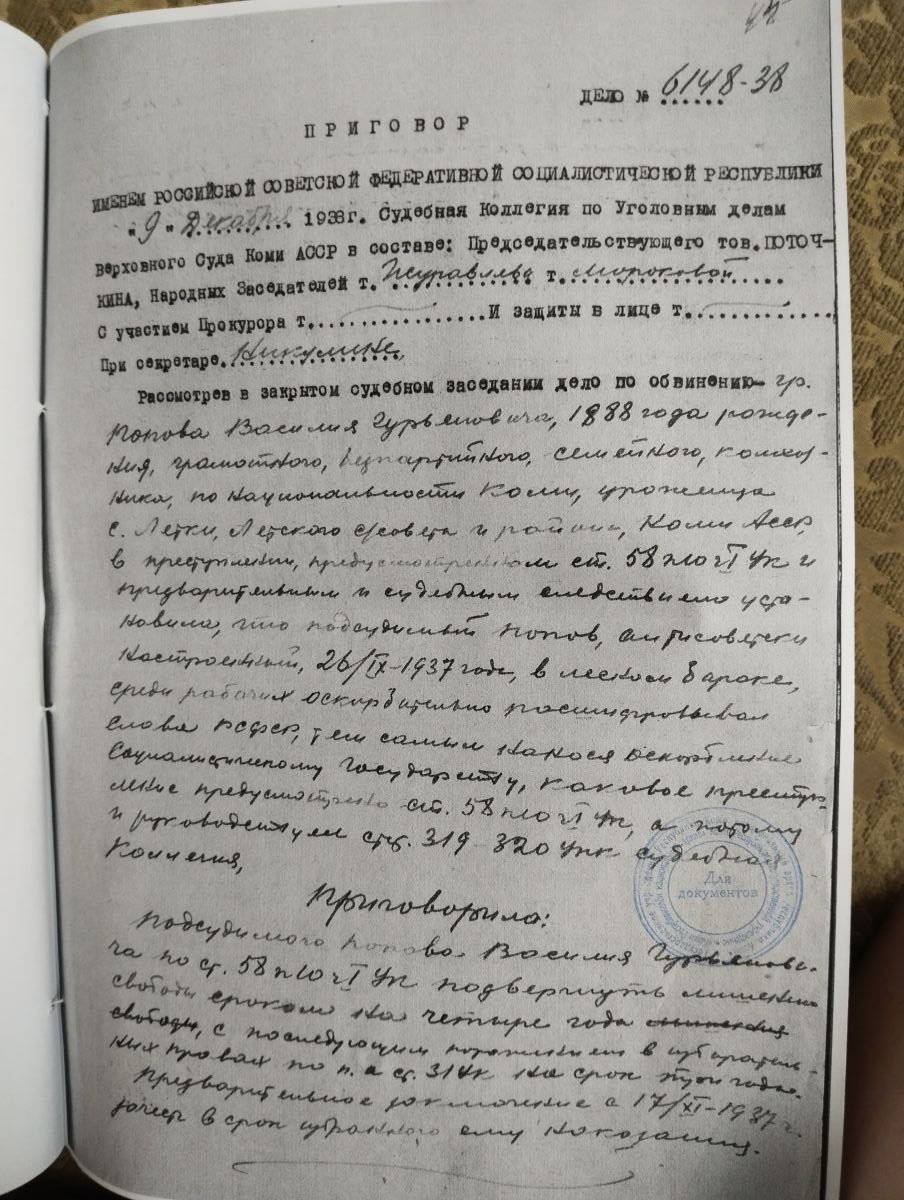 ДЕЛО № 6148-38
ПРИГОВОР
ИМЕНЕМ РОССИЙСКОЙ СОВЕТСКОЙ ФЕДЕРАТИВНОЙ СОЦИАЛИСТИЧЕСКОЙ РЕСПУБЛИКИ
"9" Декабря 1938г. Судебная Коллегия по Уголовным делам
Верховного Суда Коми АССР в составе: Председательствующего тов. ПОТОЧ-
КИНА, Народных Заседателей т. Журавлева т. Мороковой
С участием Прокурора т.................И защиты в лице т............
При секретаре Никулине
Рассмотрев в закрытом судебном заседании дело по обвинению гр.
Попова Василия Гурьяновича, 1888 года рожде-
ния, грамотного, беспартийного, семейного, колхоз-
ника, по национальности Коми, уроженца
с. Летки, Летского с/совета и района, Коми АССР,
в преступлении, предусмотренном ст. 58 п 10 ч I УК и
предварительным и судебным следствием уста-
новила, что подсудимый Попов, антисоветски
настроенный, 26/IX-1937 года, в лесном бараке,
среди рабочих оскорбительно расшифровывал
слова РСФСР, тем самым нанося оскорбление
Социалистическому Государству, каковое преступ-
ление предусмотрено ст. 58 п 10 ч I УК, а потому
и руководствуясь стт. 319-320 УПК судебная
Коллегия,
Приговорила:
Подсудимого Попова Василия Гурьянови-
ча по ст. 58 п 10 ч I УК подвергнуть лишению
свободы сроком на четыре года лишения
свободы, с последующим поражением в избиратель-
ных правах по п. а ст. 31 УК на срок три года.
Предварительное заключение с 17/XI-1937 г.
зачесть в срок избранного ему наказания.
Для
документов